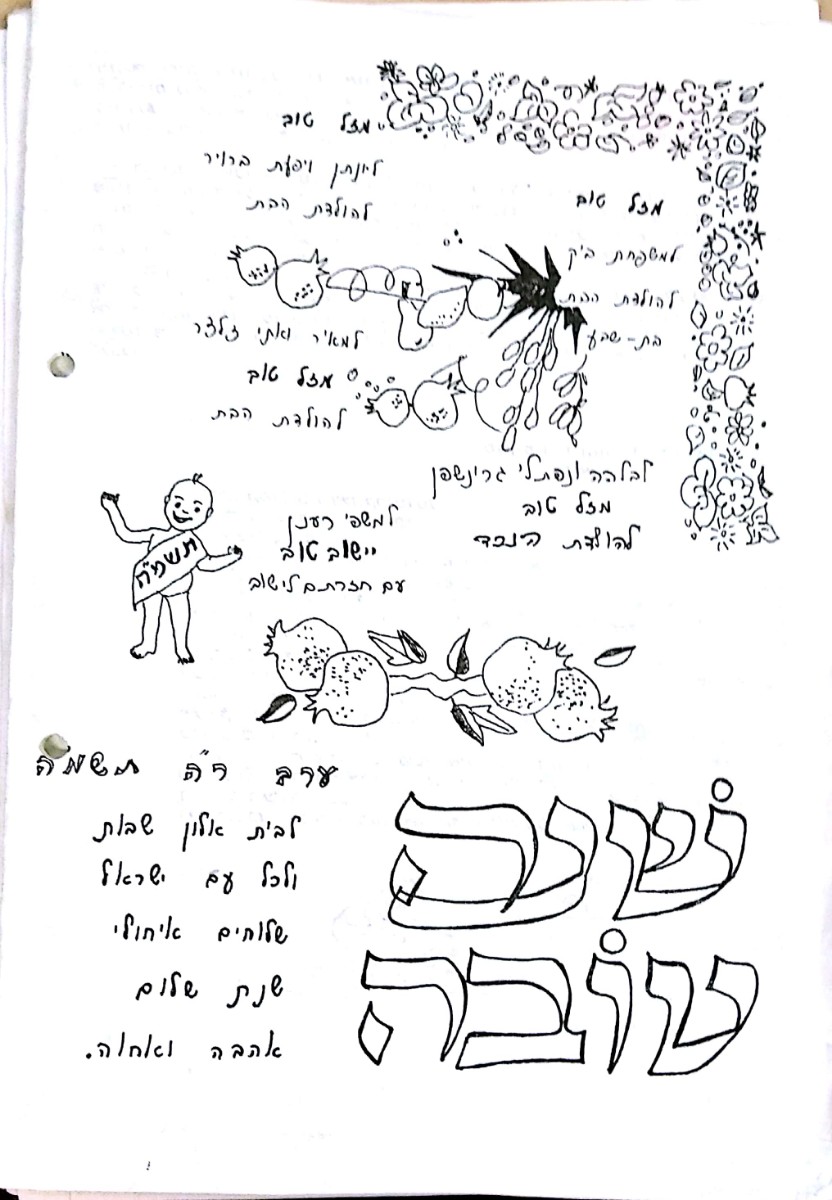 מזל טוב
ליונתן ויפעת ברויר
להולדת הבת
מזל טוב
למשפחת ביק
להולדת הבת
בת-שבע
למאיר ואתי זלצר
מזל טוב
להולדת הבת
לבלהה ונפתלי גרינשפן
מזל טוב
להולדת הנכד
למשפ' רענן
יישוב טוב
עם חזרתם לישוב
תשמ"ה
ערב ר"ה תשמ"ה
לבית אלון שבות
ולכל עם ישראל
שלוחים איחולי
שנת שלום
אהבה ואחוה.
שנה
טובה